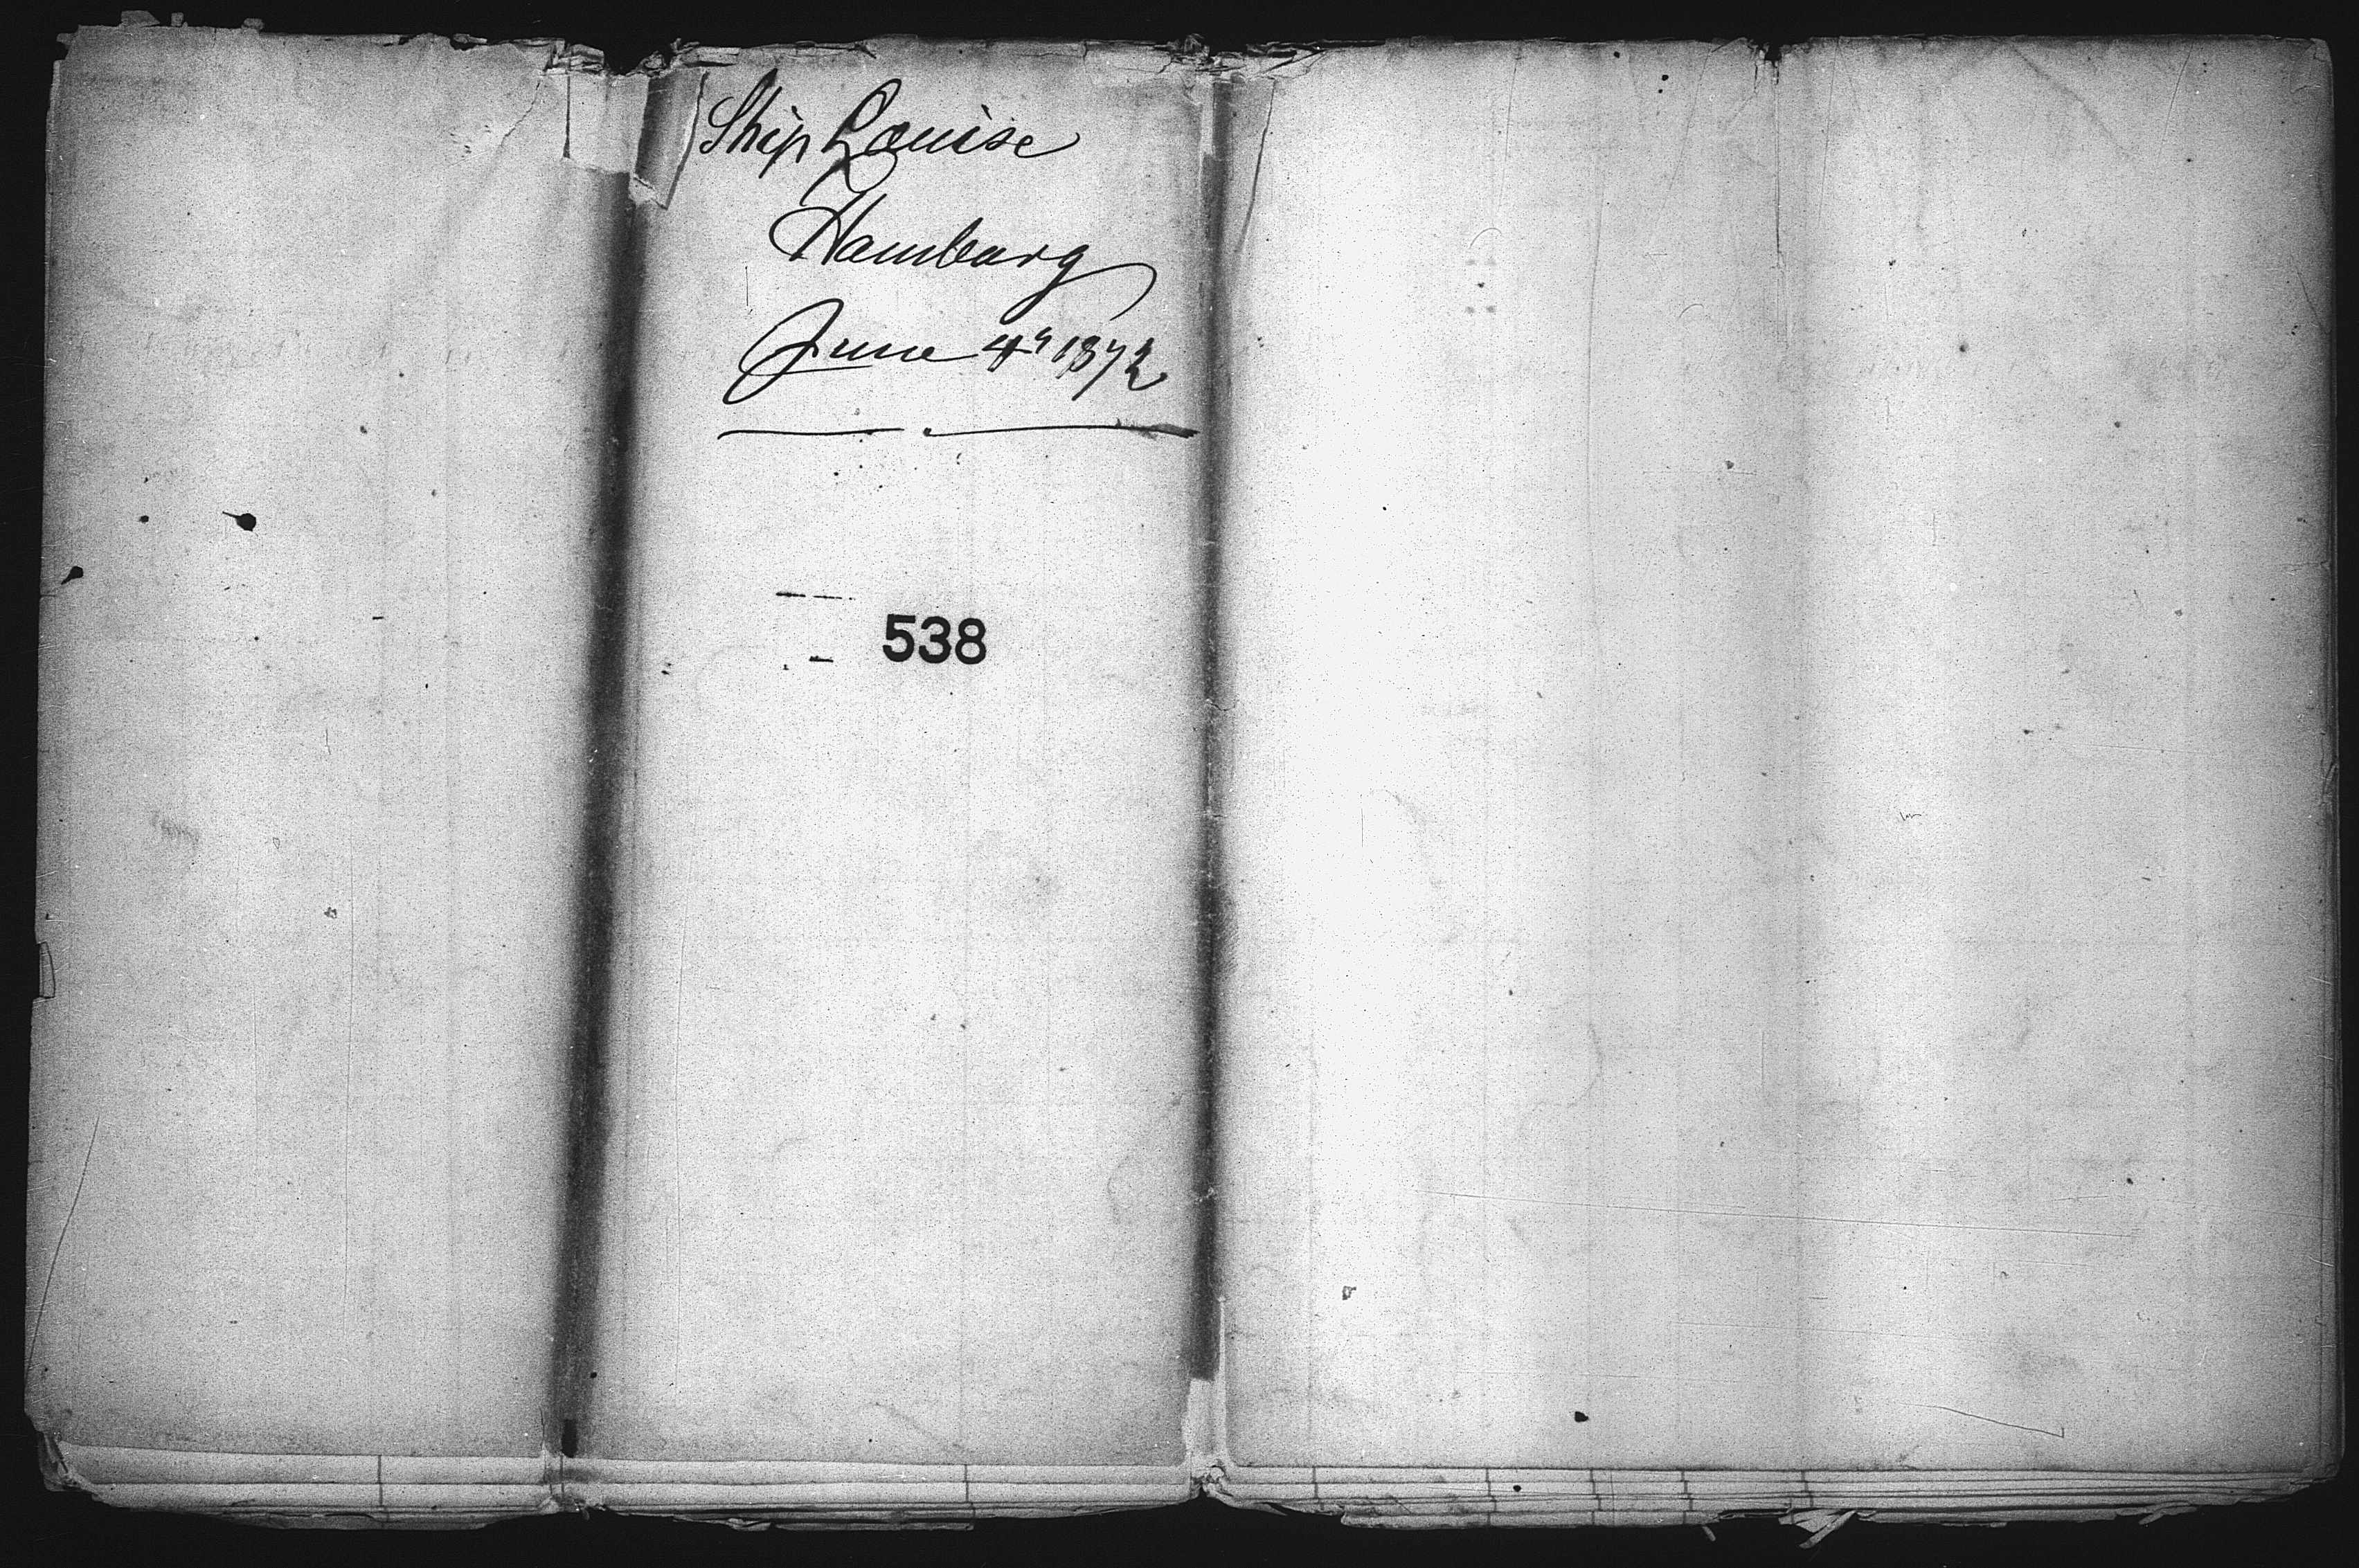 Ship Louise
Hamburg
June 4" 1872
538